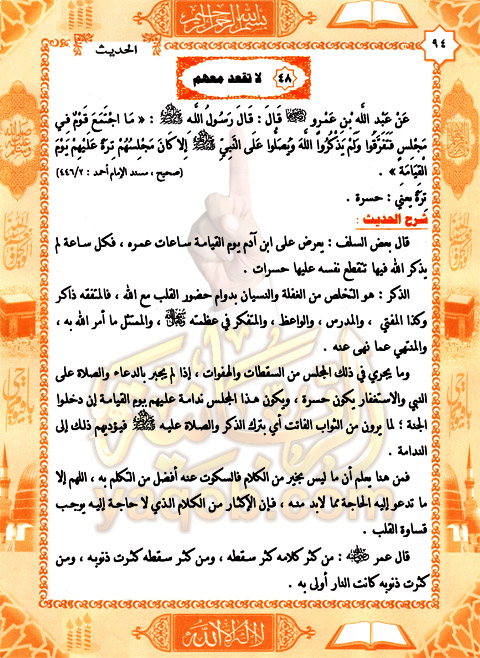 بسم الله الرحمن الرحيم
٩٤
الحديث
٤٨ لا تقعد معهم
عَنْ عَبْدِ اللهِ بْنِ عَمْرٍو رضي الله عنه قَالَ : قَالَ رَسُولُ اللهِ ﷺ : « مَا اجْتَمَعَ قَوْمٌ فِي
مَجْلِسٍ فَتَفَرَّقُوا وَلَمْ يَذْكُرُوا اللهَ وَيُصَلُّوا عَلَى النَّبِيِّ ﷺ إِلا كَانَ مَجْلِسُهُمْ تِرَةً عَلَيْهِمْ يَوْمَ
الْقِيَامَةِ » . (صحيح ، مسند الإمام أحمد : ٤٤٦/٢)
تِرَةً يعني : حسرة .
شرح الحديث :
قال بعض السلف : يعرض على ابن آدم يوم القيامة ساعات عمره ، فكل ساعة لم
يذكر الله فيها تتقطع نفسه عليها حسرات .
الذكر : هو التخلص من الغفلة والنسيان بدوام حضور القلب مع الله ، فالمتفقه ذاكر
وكذا المفتي ، والمدرس ، والواعظ ، والمتفكر في عظمته ، والممتثل ما أمر الله به ،
والمنتهي عما نهى عنه .
وما يجري في ذلك المجلس من السقطات والهفوات ، إذا لم يجبر بالدعاء والصلاة على
النبي والاستغفار يكون حسرة ، ويكون هذا المجلس ندامة عليهم يوم القيامة إن دخلوا
الجنة ؛ لما يرون من الثواب الفائت أي بترك الذكر والصلاة عليه ﷺ فيؤديهم ذلك إلى
الندامة .
فمن هنا يعلم أن ما ليس بخير من الكلام فالسكوت عنه أفضل من التكلم به ، اللهم إلا
ما تدعو إليه الحاجة مما لابد منه ، فإن الإكثار من الكلام الذي لا حاجة إليه يوجب
قساوة القلب .
قال عمر رضي الله عنه : من كثر كلامه كثر سقطه ، ومن كثر سقطه كثرت ذنوبه ، ومن
كثرت ذنوبه كانت النار أولى به .
yaqob.com
لا إله إلا الله